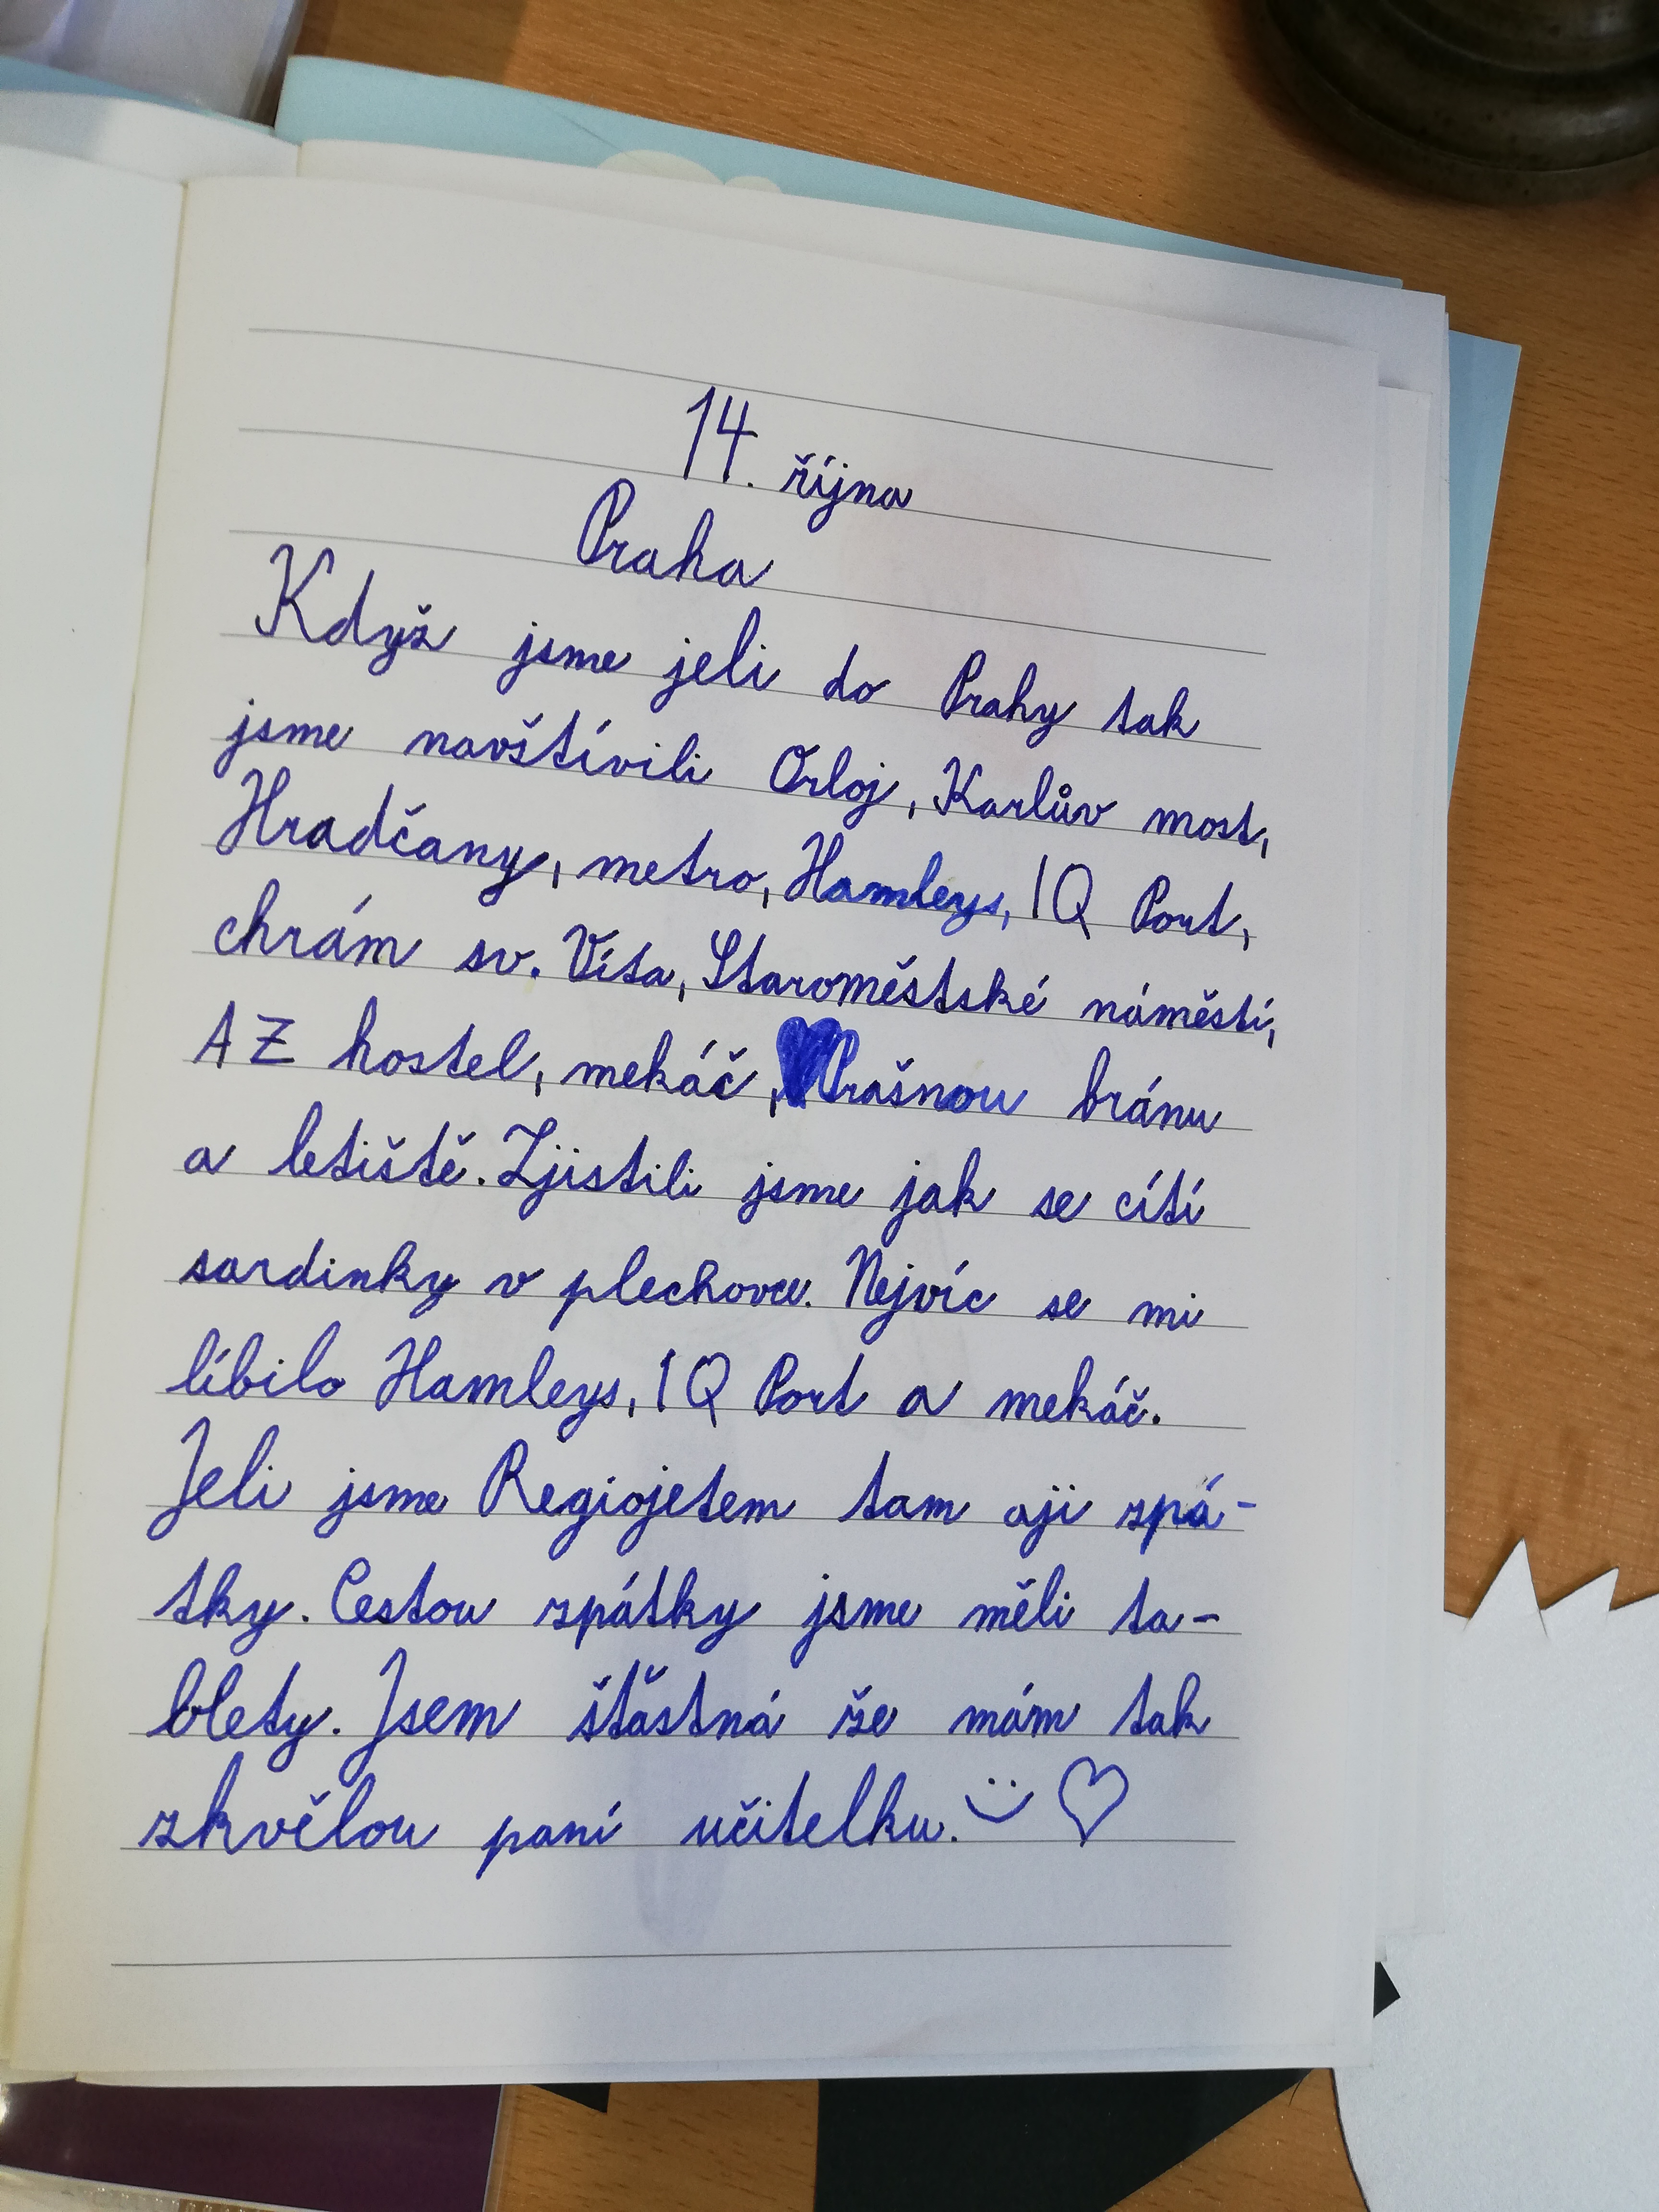 14. října
Praha
Když jsme jeli do Prahy tak
jsme navštívili Orloj, Karlův most,
Hradčany, metro, Hamleys, IQ Port,
chrám sv. Víta, Staroměstské náměstí,
AZ hostel, mekáč, Prašnou bránu
a letiště. Zjistili jsme jak se cítí
sardinky v plechovce. Nejvíc se mi
líbilo Hamleys, IQ Port a mekáč.
Jeli jsme Regiojetem tam aji zpá-
tky. Cestou zpátky jsme měli ta-
blety. Jsem šťastná že mám tak
zkvělou paní učitelku.